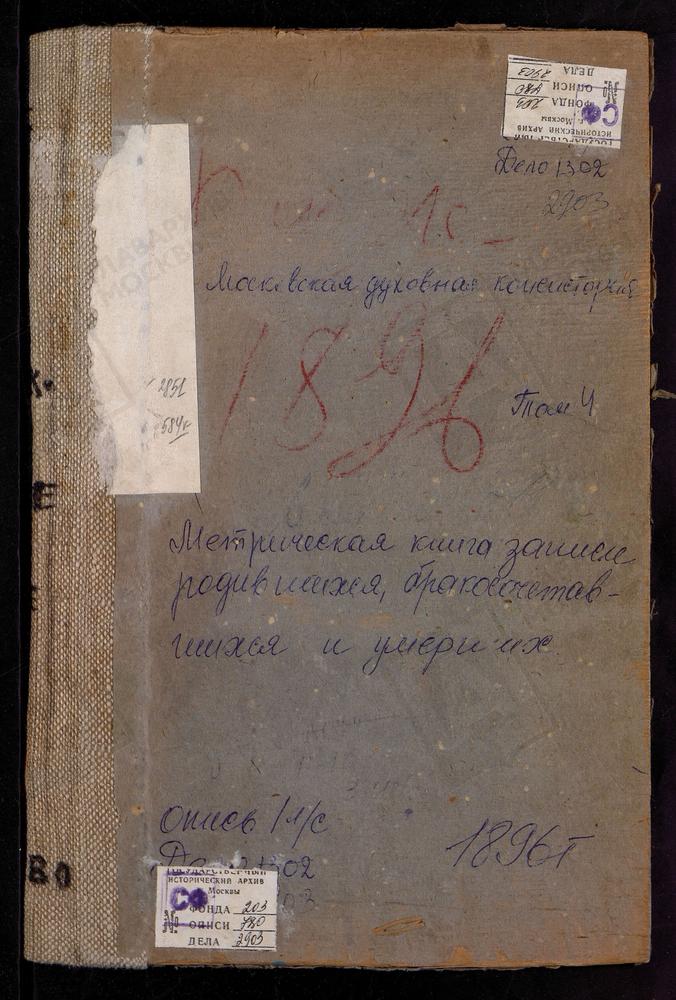 ДЕЛА 2903
ОПИСИ 780
ФОНДА 203
№
СФ
г. Москвы
ИСТОРИЧЕСКИЙ АРХИВ
Дело 1302
2903
Московская духовная консистория
1896
Том 4
2851
584
Метрическая книга записи
родившихся, бракосочетав-
шихся и умерших
опись 1 м/с
1302
1896 г
ГОСУДАРСТВЕННЫЙ
ИСТОРИЧЕСКИЙ АРХИВ
г. Москвы
СФ
ФОНДА 203
№ ОПИСИ 780
ДЕЛА 2903